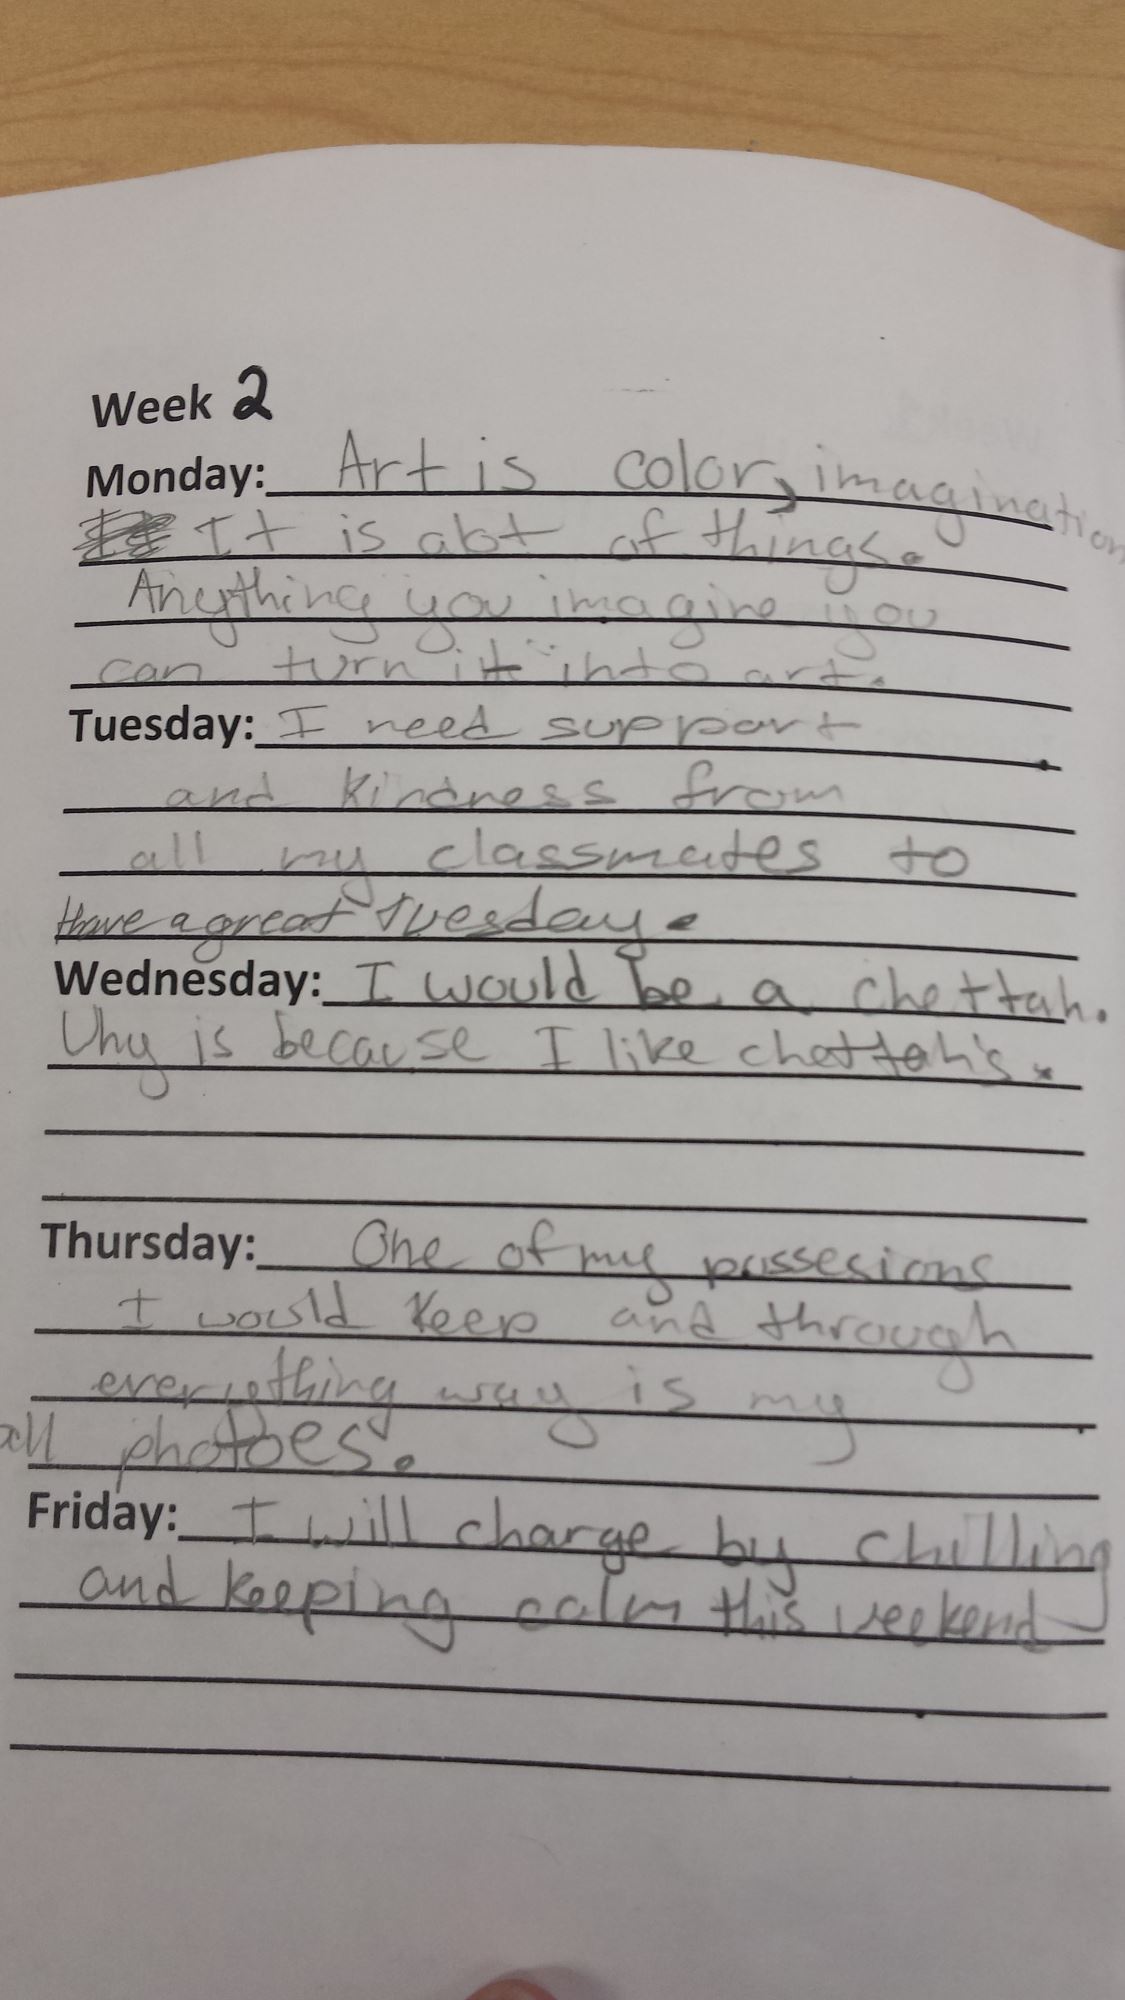 Week 2
Monday: Art is color, imagination
It is alot of things.
Anything you imagine you
can turn it into art.
Tuesday: I need support
and kindness from
all my classmates to
Have a great Tuesday.
Wednesday: I would be a chettah.
Why is because I like chettah's.
Thursday: One of my possesions
I would keep and through
everything way is my
all photoes.
Friday: I will charge by chilling
and keeping calm this weekend